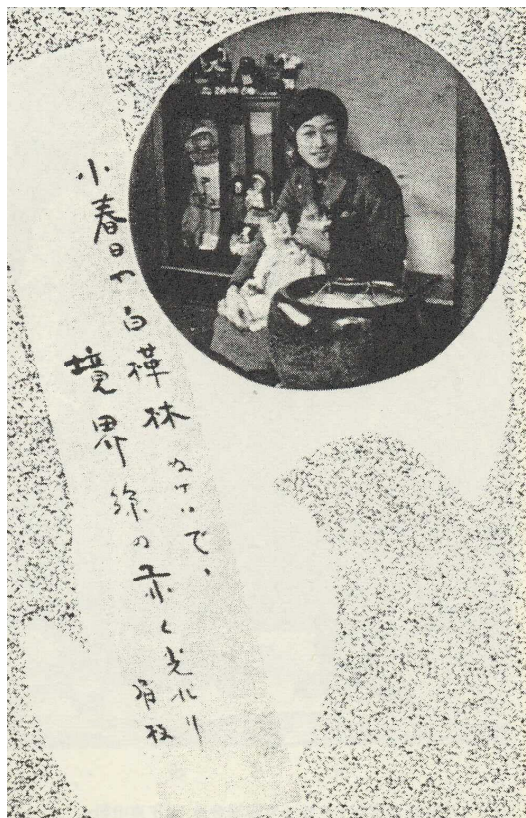 小春日や白樺林なさいで、
境界線の赤く光れり